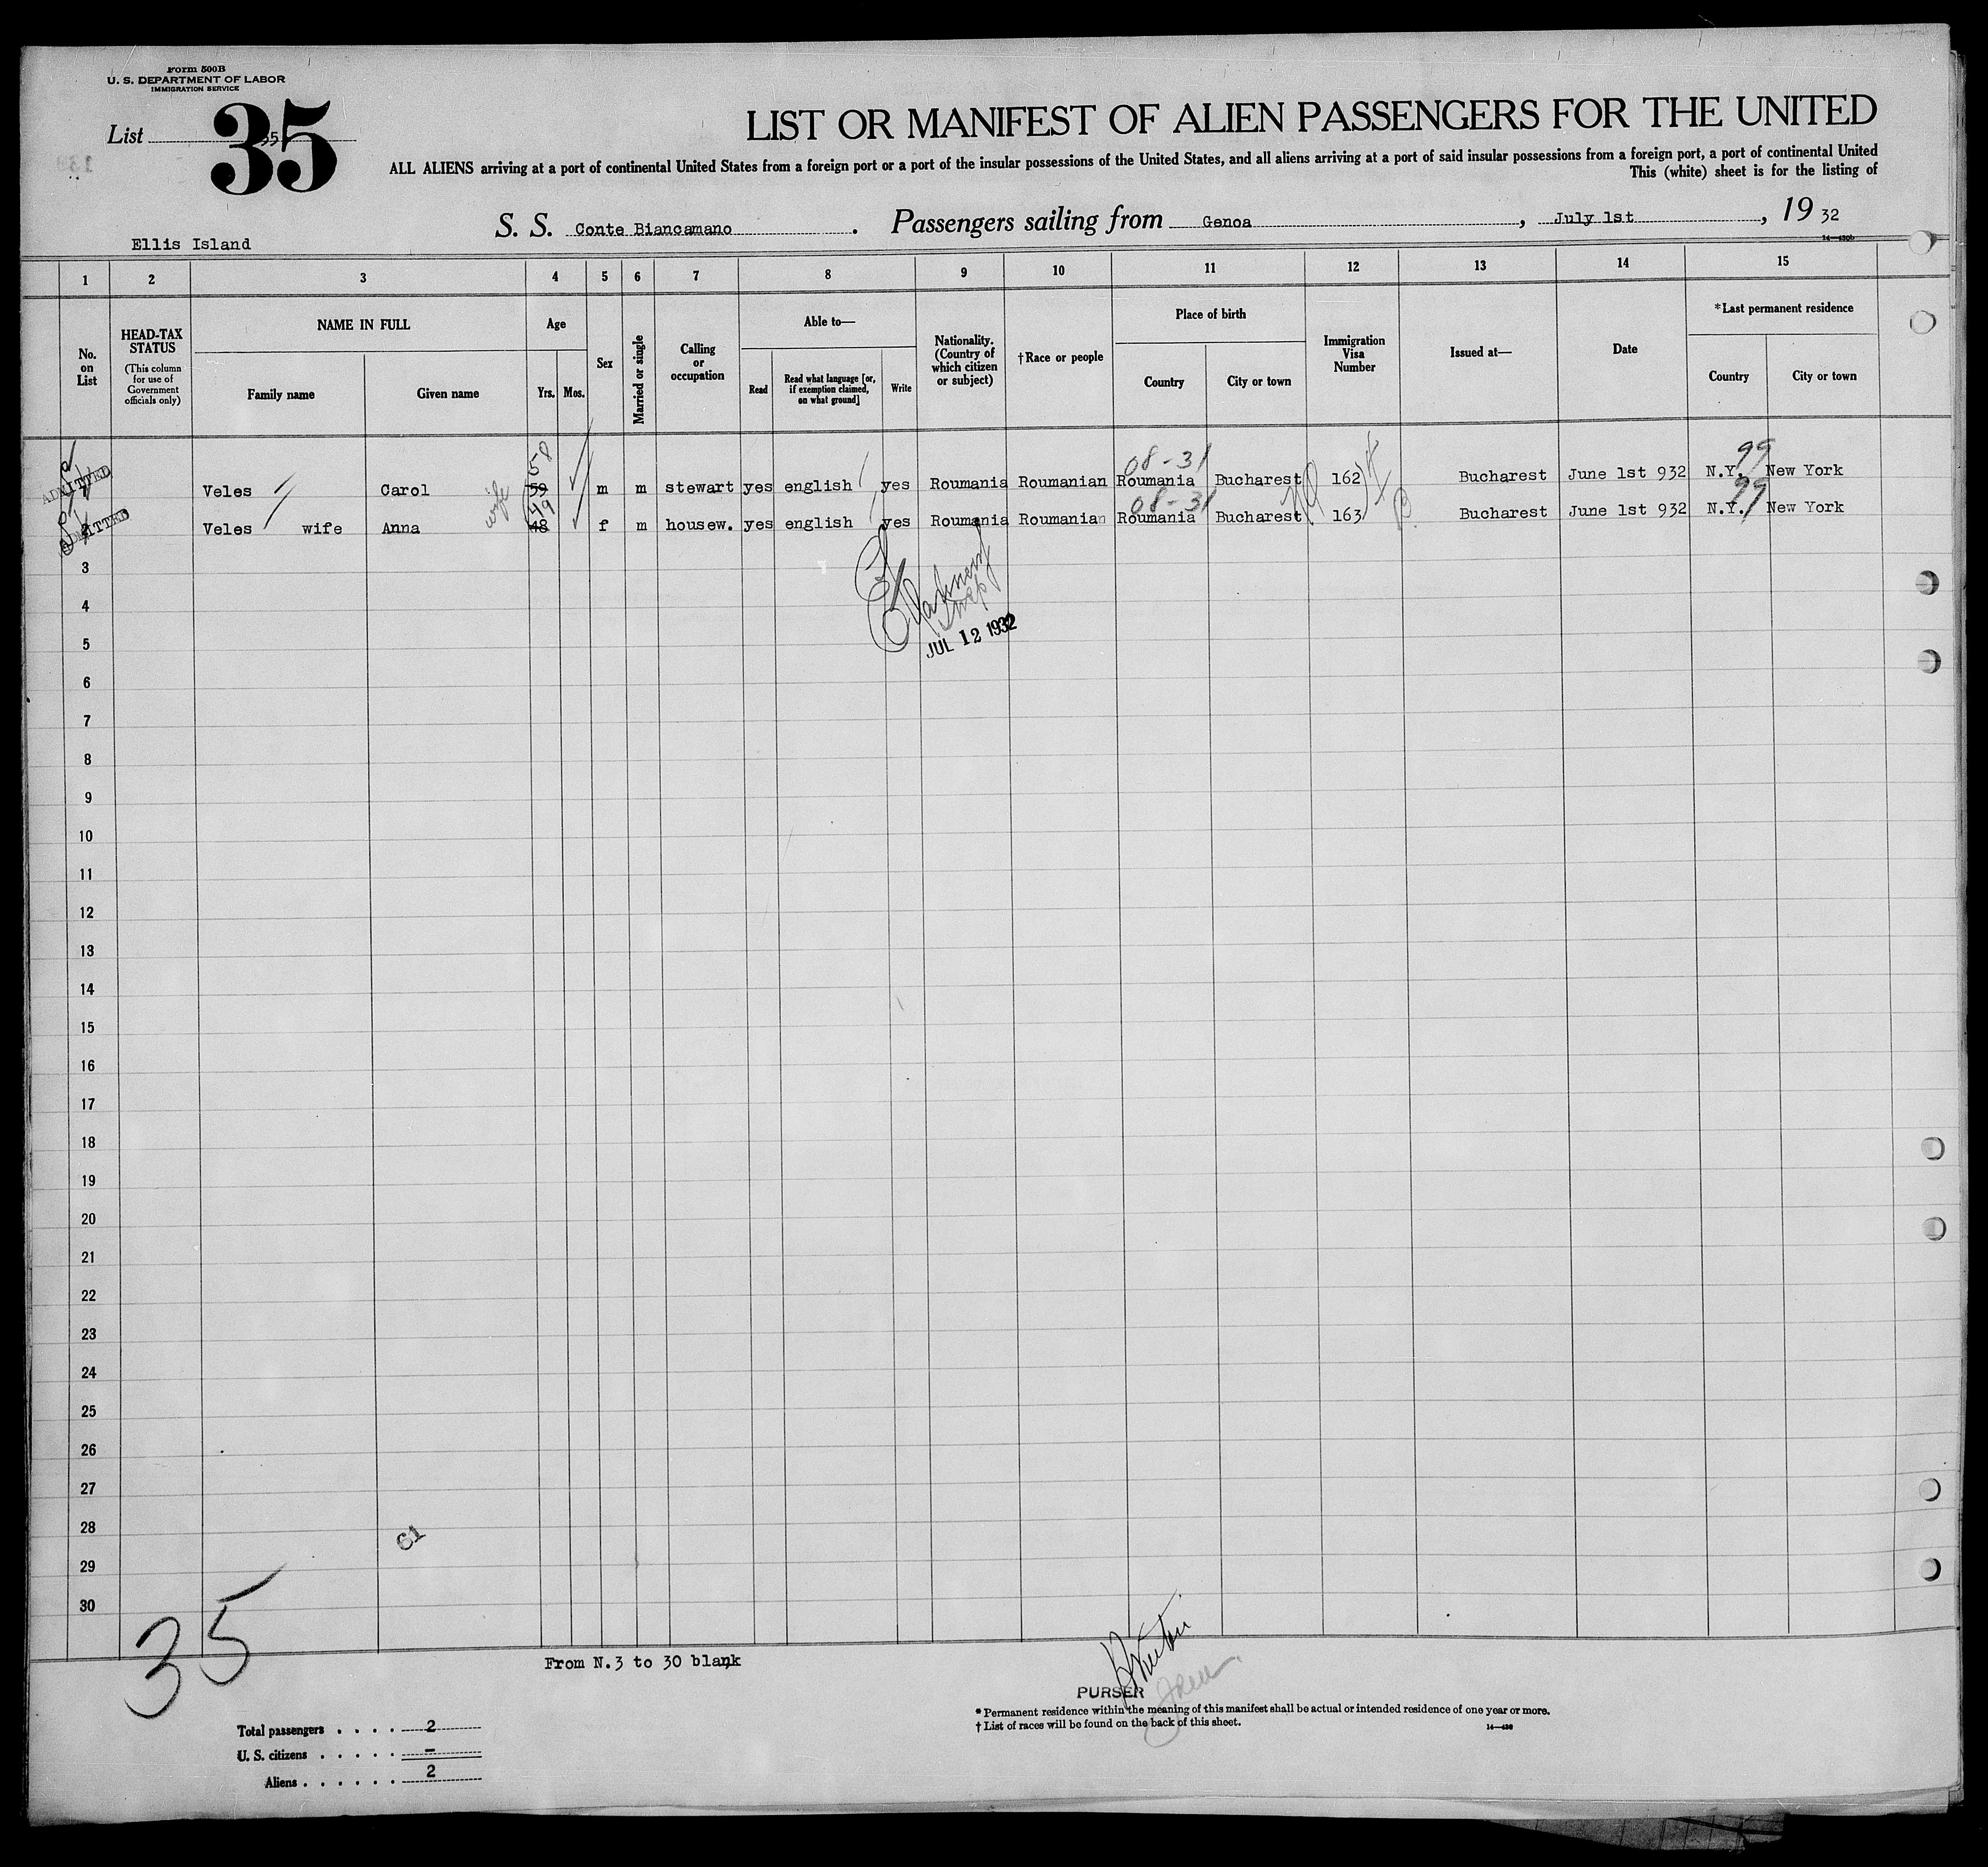 Form 500B
U. S. DEPARTMENT OF LABOR
IMMIGRATION SERVICE
List 35
35
LIST OR MANIFEST OF ALIEN PASSENGERS FOR THE UNITED
ALL ALIENS arriving at a port of continental United States from a foreign port or a port of the insular possessions of the United States, and all aliens arriving at a port of said insular possessions from a foreign port, a port of continental United
This (white) sheet is for the listing of
Ellis Island
S. S. Conte Biancamano . Passengers sailing from Genoa , July 1st , 19 32
14—430b
1 2 3 4 5 6 7 8 9 10 11 12 13 14 15
No. on List
HEAD-TAX STATUS
(This column for use of Government officials only)
NAME IN FULL
Family name
Given name
Age
Yrs. Mos.
Sex
Married or single
Calling or occupation
Able to—
Read
Read what language [or, if exemption claimed, on what ground]
Write
Nationality. (Country of which citizen or subject)
†Race or people
Place of birth
Country
City or town
Immigration Visa Number
Issued at—
Date
*Last permanent residence
Country
City or town
58 08-31 99
ADMITTED Veles Carol 59 m m stewart yes english yes Roumania Roumanian Roumania Bucharest 162 Bucharest June 1st 932 N.Y. New York
wife 49 08-31 99
ADMITTED Veles wife Anna 48 f m housew. yes english yes Roumania Roumanian Roumania Bucharest 163 Bucharest June 1st 932 N.Y. New York
JUL 12 1932
3
4
5
6
7
8
9
10
11
12
13
14
15
16
17
18
19
20
21
22
23
24
25
26
27
28
29
30
61
35
From N.3 to 30 blank
PURSER
* Permanent residence within the meaning of this manifest shall be actual or intended residence of one year or more.
† List of races will be found on the back of this sheet.
14—430
Total passengers . . . . 2
U. S. citizens . . . . . —
Aliens . . . . . . 2